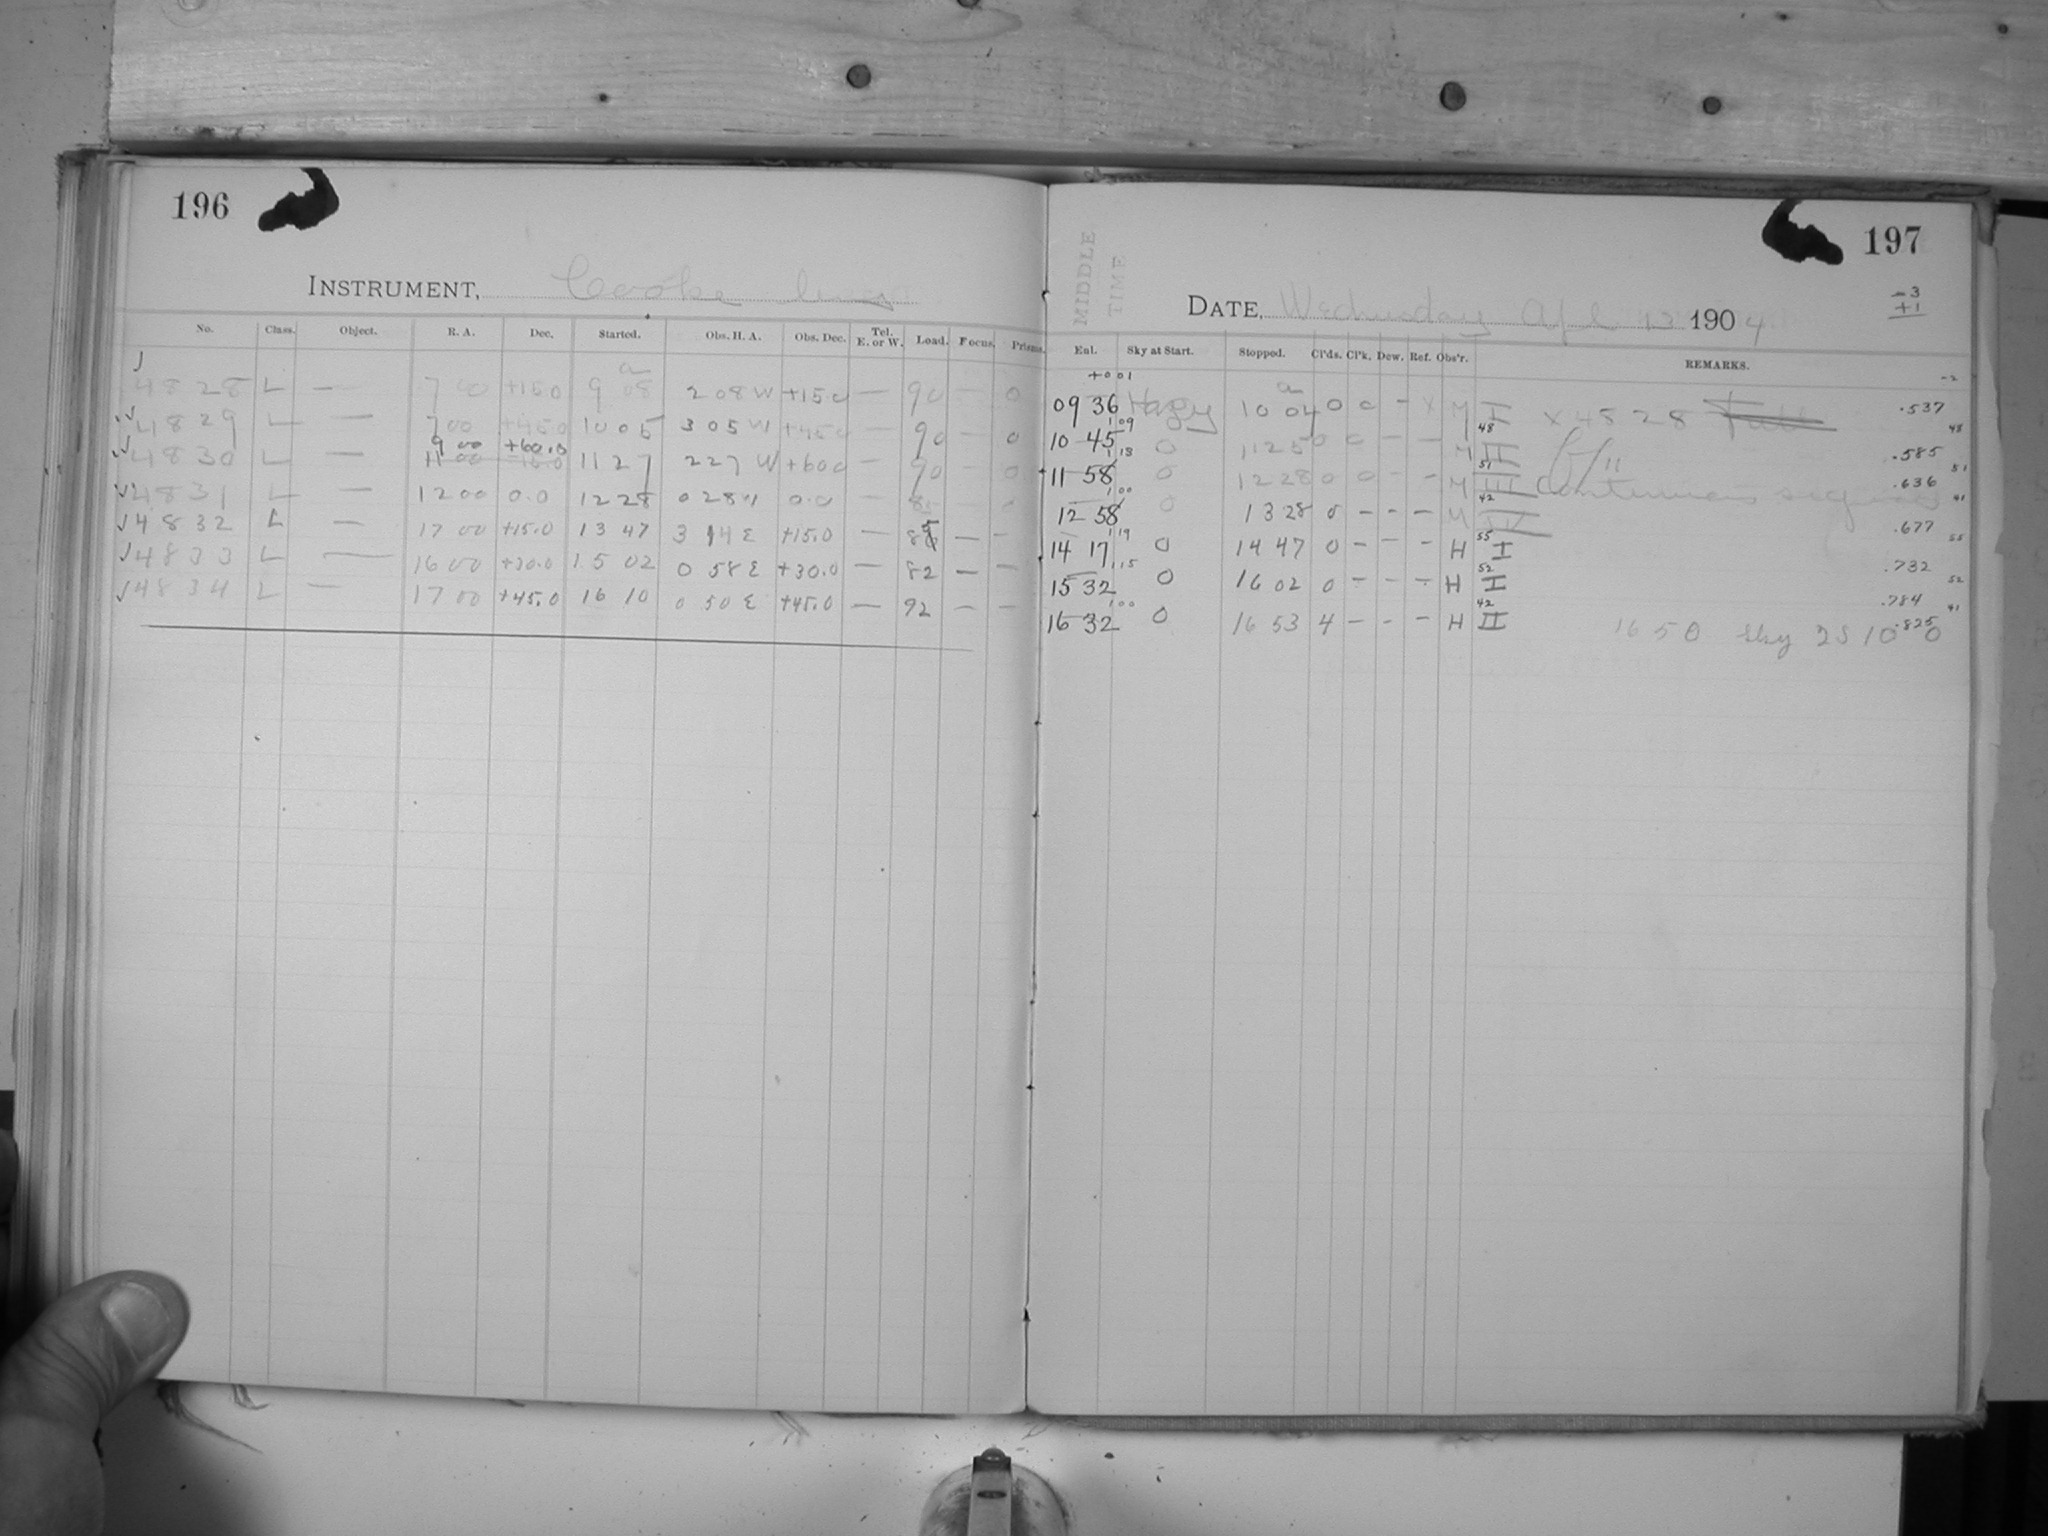 196
INSTRUMENT, Cooke lens
No. Class. Object. R. A. Dec. Started. Obs. H. A. Obs. Dec. Tel. E. or W. Load. Focus. Prisms.
4828 L — 7 00 +15.0 9 08 2 08 W +15.0 — 90 — 0
4829 L — 7 00 +45.0 10 05 3 05 W +45.0 — 90 — 0
9 00 +60.0
4830 L — 11 00 11 27 2 27 W +60.0 — 90 — 0
4831 L — 12 00 0.0 12 28 0 28 W 0.0 —
4832 L — 17 00 +15.0 13 47 3 14 E +15.0 — — —
4833 L — 16 00 +30.0 15 02 0 58 E +30.0 — 82 — —
4834 L — 17 00 +45.0 16 10 0 50 E +45.0 — 92 — —
197
MIDDLE TIME
DATE, Wednesday Apl 13 1904
-3
+1
Enl. Sky at Start. Stopped. Cl'ds. Cl'k. Dew. Ref. Obs'r. REMARKS.
+0 01 -2
09 36 Hazy 10 04 0 0 - x M I x 4828 .537
1 09 48 48
10 45 0 11 25 0 0 — — M II .585
1 13 51 51
11 58 0 12 28 0 0 - - M III Continuous .636
1 00 42 41
12 58 0 13 28 0 - - - M IV .677
1 19 55 55
14 17 0 14 47 0 - - - H I .732
1 15 52 52
15 32 0 16 02 0 - - - H I .784
1 00 42 41
16 32 0 16 53 4 - - - H II .825
16 50 Sky 25 10 0